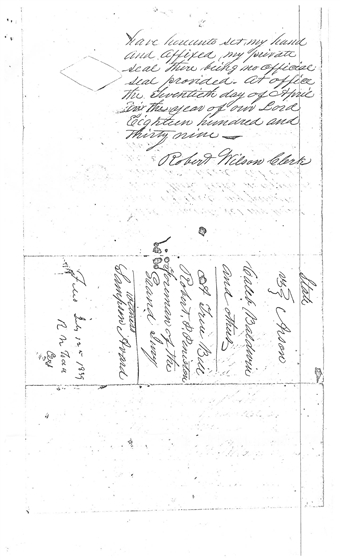 have hereunto set my hand
and affixed my private
seal there being no official
seal provided. at office
the Seventeeth day of April
in the year of our Lord
Eighteen hundred and
thirty nine —
Robert Wilson Clerk
State
vs } Arson
Caleb Baldwin
and others
A True Bill
Robert
Foreman of the
Grand Jury
witness
Sampson Avard
1839